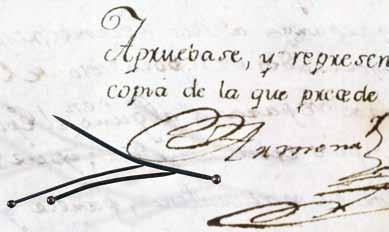 Apruebase, y represen
copia de la que precede
Armona